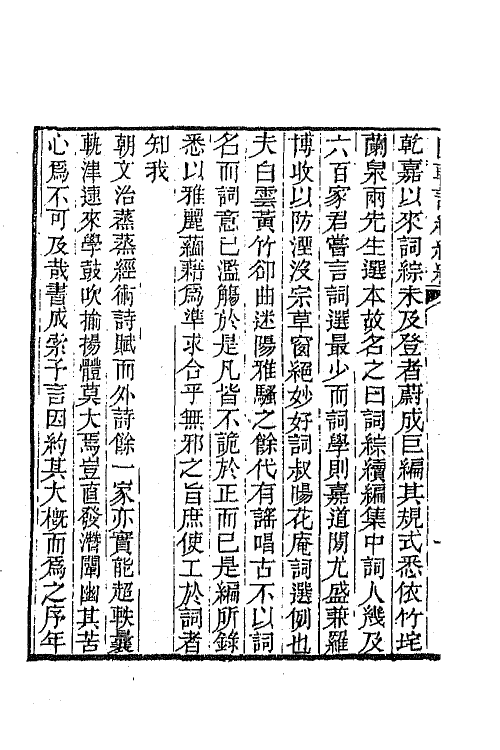 乾嘉以來詞綜未及登者蔚成巨編其規式悉依竹垞
蘭泉兩先生選本故名之曰詞綜續編集中詞人幾及
六百家君嘗言詞選最少而詞學則嘉道閒尤盛兼羅
博收以防湮沒宗草窗絕妙好詞叔暘花庵詞選例也
夫白雲黃竹卻曲迷陽雅騷之餘代有謠唱古不以詞
名而詞意已濫觴於是凡皆不詭於正而已是編所錄
悉以雅麗蘊藉爲準求合乎無邪之旨庶使工於詞者
知我
朝文治蒸蒸經術詩賦而外詩餘一家亦實能超軼曩
軌津逮來學鼓吹揄揚體莫大焉豈直發潛闡幽其苦
心爲不可及哉書成索予言因約其大槪而爲之序年